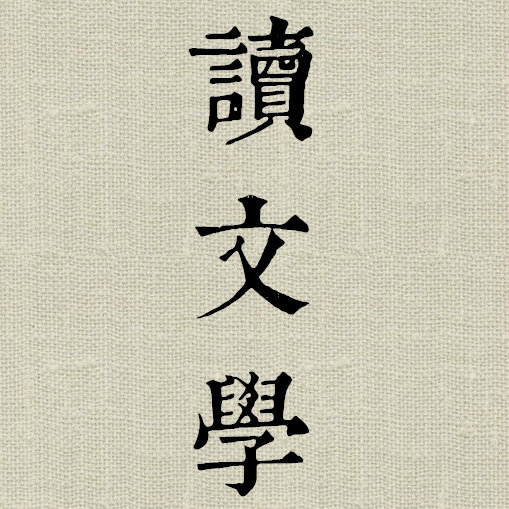 讀文學